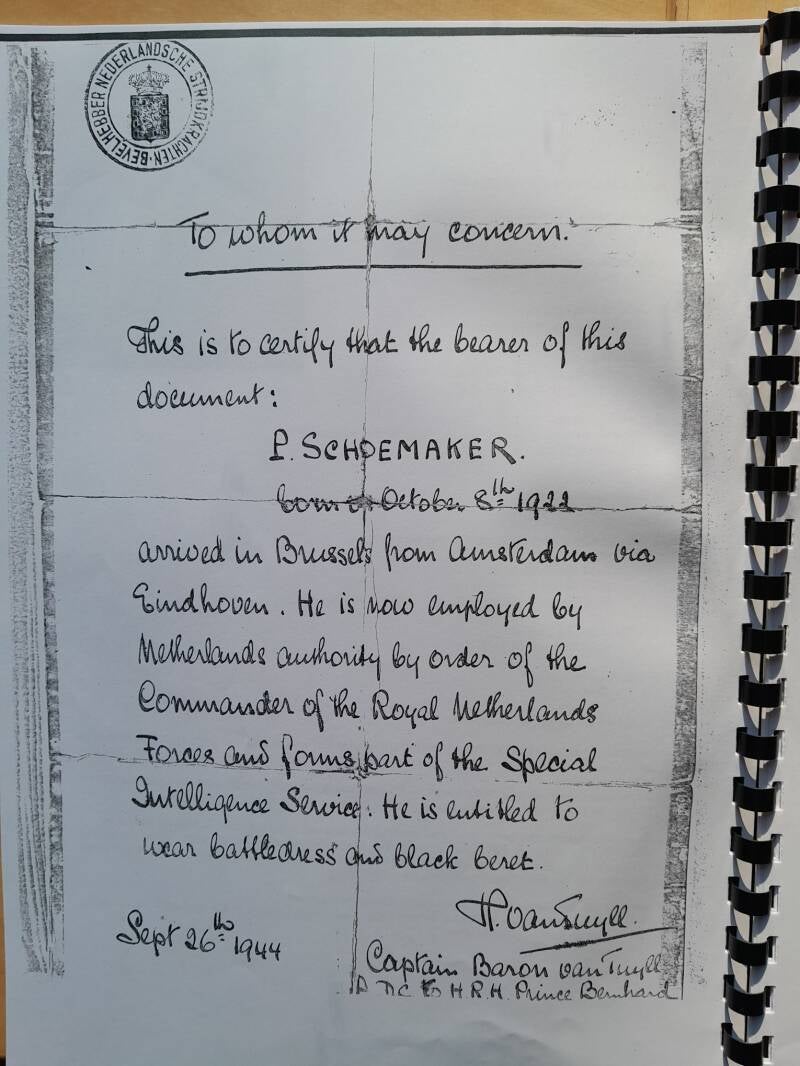 BEVELHEBBER NEDERLANDSCHE STRIJDKRACHTEN
To whom it may concern.
This is to certify that the bearer of this
document:
P. SCHOEMAKER.
born on October 8th 1922
arrived in Brussels from Amsterdam via
Eindhoven. He is now employed by
Netherlands authority by order of the
Commander of the Royal Netherlands
Forces and forms part of the Special
Intelligence Service. He is entitled to
wear battledress and black beret.
H. VanTuyll.
Sept 26th 1944
Captain Baron vanTuyll
A D C to H.R.H. Prince Bernhard